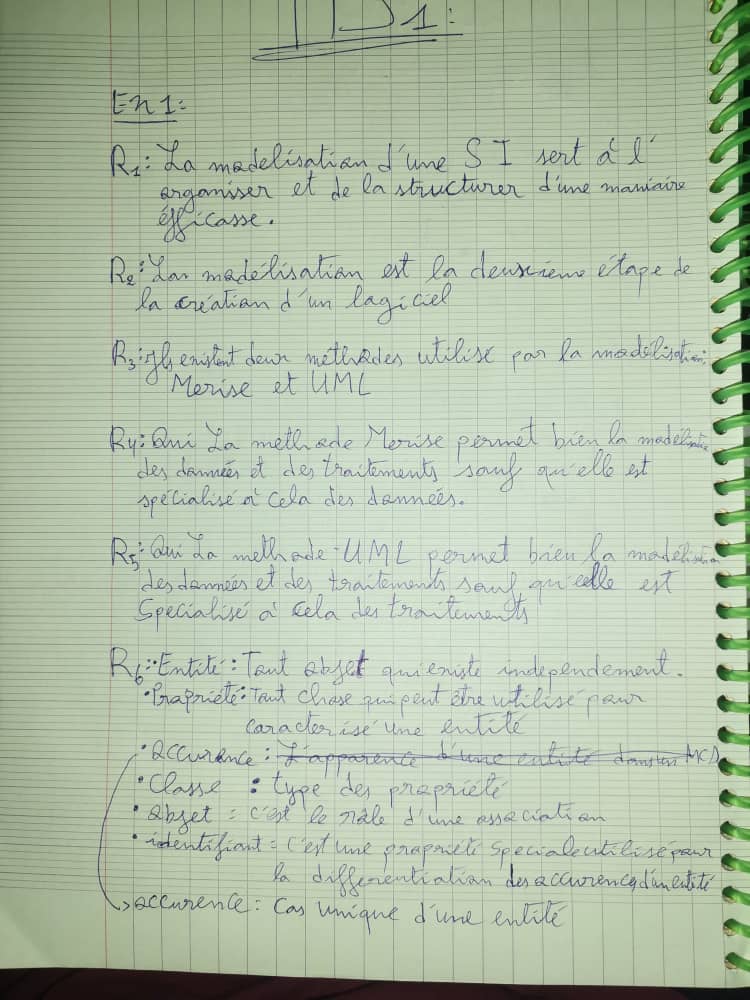 TD1:
Ex 1:
R1: La modelisation d'une SI sert à l'
organiser et de la structurer d'une maniaire
éfficasse.
R2: La modélisation est la deuxieme étape de
la création d'un logiciel
R3: Ils existent deux méthodes utilisé par la modélisation:
Merise et UML
R4: Oui La methode Merise permet bien la modélisation
des données et des traitements sauf qu'elle est
spécialisé à cela des données.
R5: Oui La methode UML permet bien la modélisation
des données et des traitements sauf qu'elle est
Specialisé à cela des traitements
R6: • Entité: Tout objet qui existe independement.
• Propriété: Tout chose qui peut être utilisé pour
caracterisé une entité
• occurence: L'apparence d'une entité dans un MCD
• Classe : type des propriété
• objet : c'est le rôle d'une association
• identifiant = c'est une propriété speciale utilisé pour
la differentiation des occurences d'un entité
→ occurence: Cas unique d'une entité